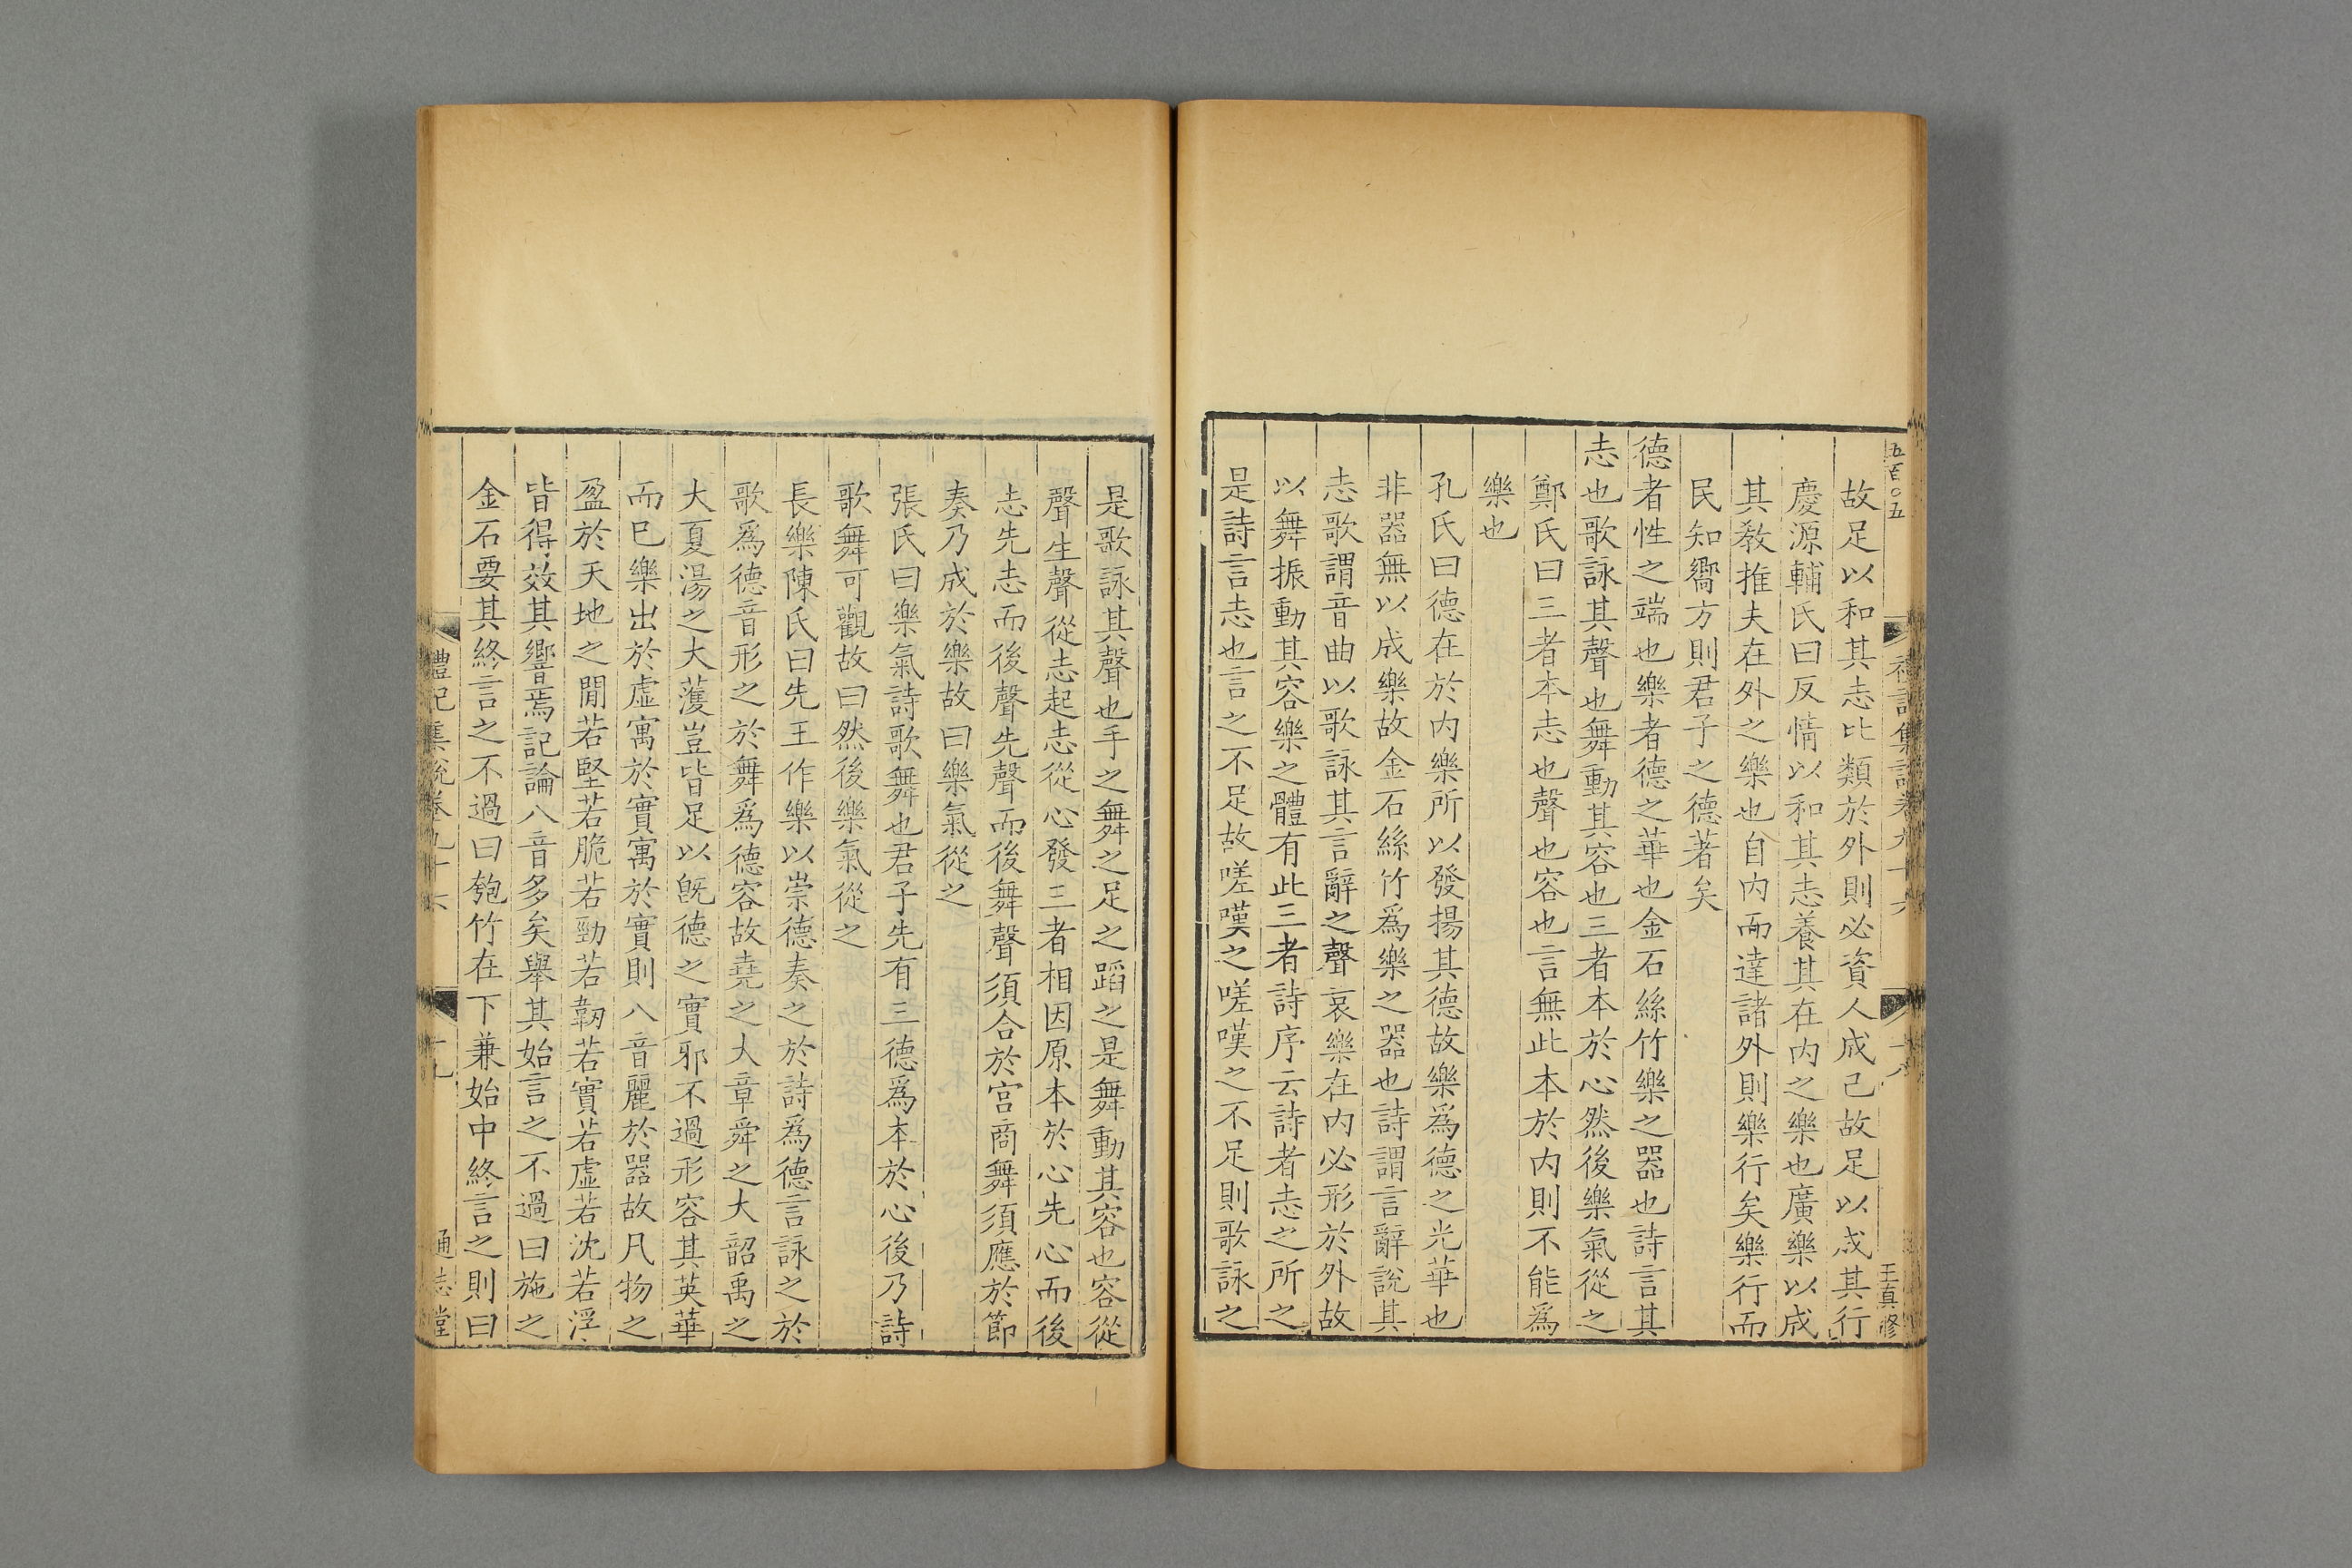 五百〇五
禮記集說卷九十六
十八
王真修
故足以和其志比類於外則必資人成己故足以成其行
慶源輔氏曰反情以和其志養其在内之樂也廣樂以成
其教推夫在外之樂也自内而達諸外則樂行矣樂行而
民知嚮方則君子之德著矣
德者性之端也樂者德之華也金石絲竹樂之器也詩言其
志也歌詠其聲也舞動其容也三者本於心然後樂氣從之
鄭氏曰三者本志也聲也容也言無此本於内則不能爲
樂也
孔氏曰德在於内樂所以發揚其德故樂爲德之光華也
非器無以成樂故金石絲竹爲樂之器也詩謂言辭說其
志歌謂音曲以歌詠其言辭之聲哀樂在内必形於外故
以舞振動其容樂之體有此三者詩序云詩者志之所之
是詩言志也言之不足故嗟嘆之嗟嘆之不足則歌詠之
是歌詠其聲也手之舞之足之蹈之是舞動其容也容從
聲生聲從志起志從心發三者相因原本於心先心而後
志先志而後聲先聲而後舞聲須合於宮商舞須應於節
奏乃成於樂故曰樂氣從之
張氏曰樂氣詩歌舞也君子先有三德爲本於心後乃詩
歌舞可觀故曰然後樂氣從之
長樂陳氏曰先王作樂以崇德奏之於詩爲德言詠之於
歌爲德音形之於舞爲德容故堯之大章舜之大韶禹之
大夏湯之大濩豈皆足以旣德之實邪不過形容其英華
而已樂出於虛寓於實寓於實則八音麗於器故凡物之
盈於天地之閒若堅若脆若勁若韌若實若虛若沈若浮
皆得效其響焉記論八音多矣舉其始言之不過曰施之
金石要其終言之不過曰匏竹在下兼始中終言之則曰
禮記集說卷九十六
十九
通志堂